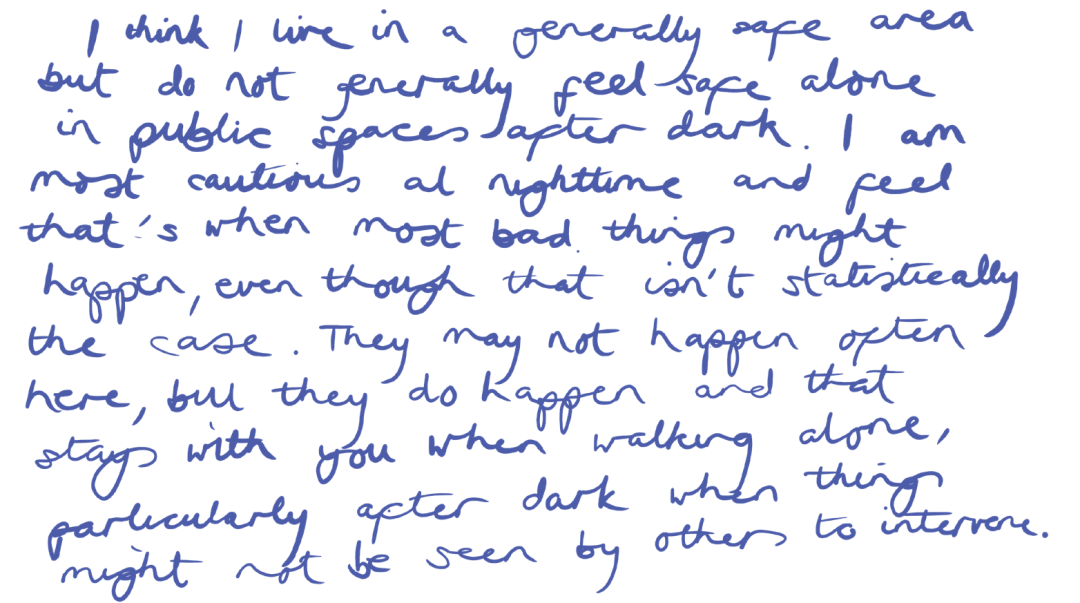 I think I live in a generally safe area
but do not generally feel safe alone
in public spaces after dark. I am
most cautious at nighttime and feel
that's when most bad things might
happen, even though that isn't statistically
the case. They may not happen often
here, but they do happen and that
stays with you when walking alone,
particularly after dark when things
might not be seen by others to intervene.